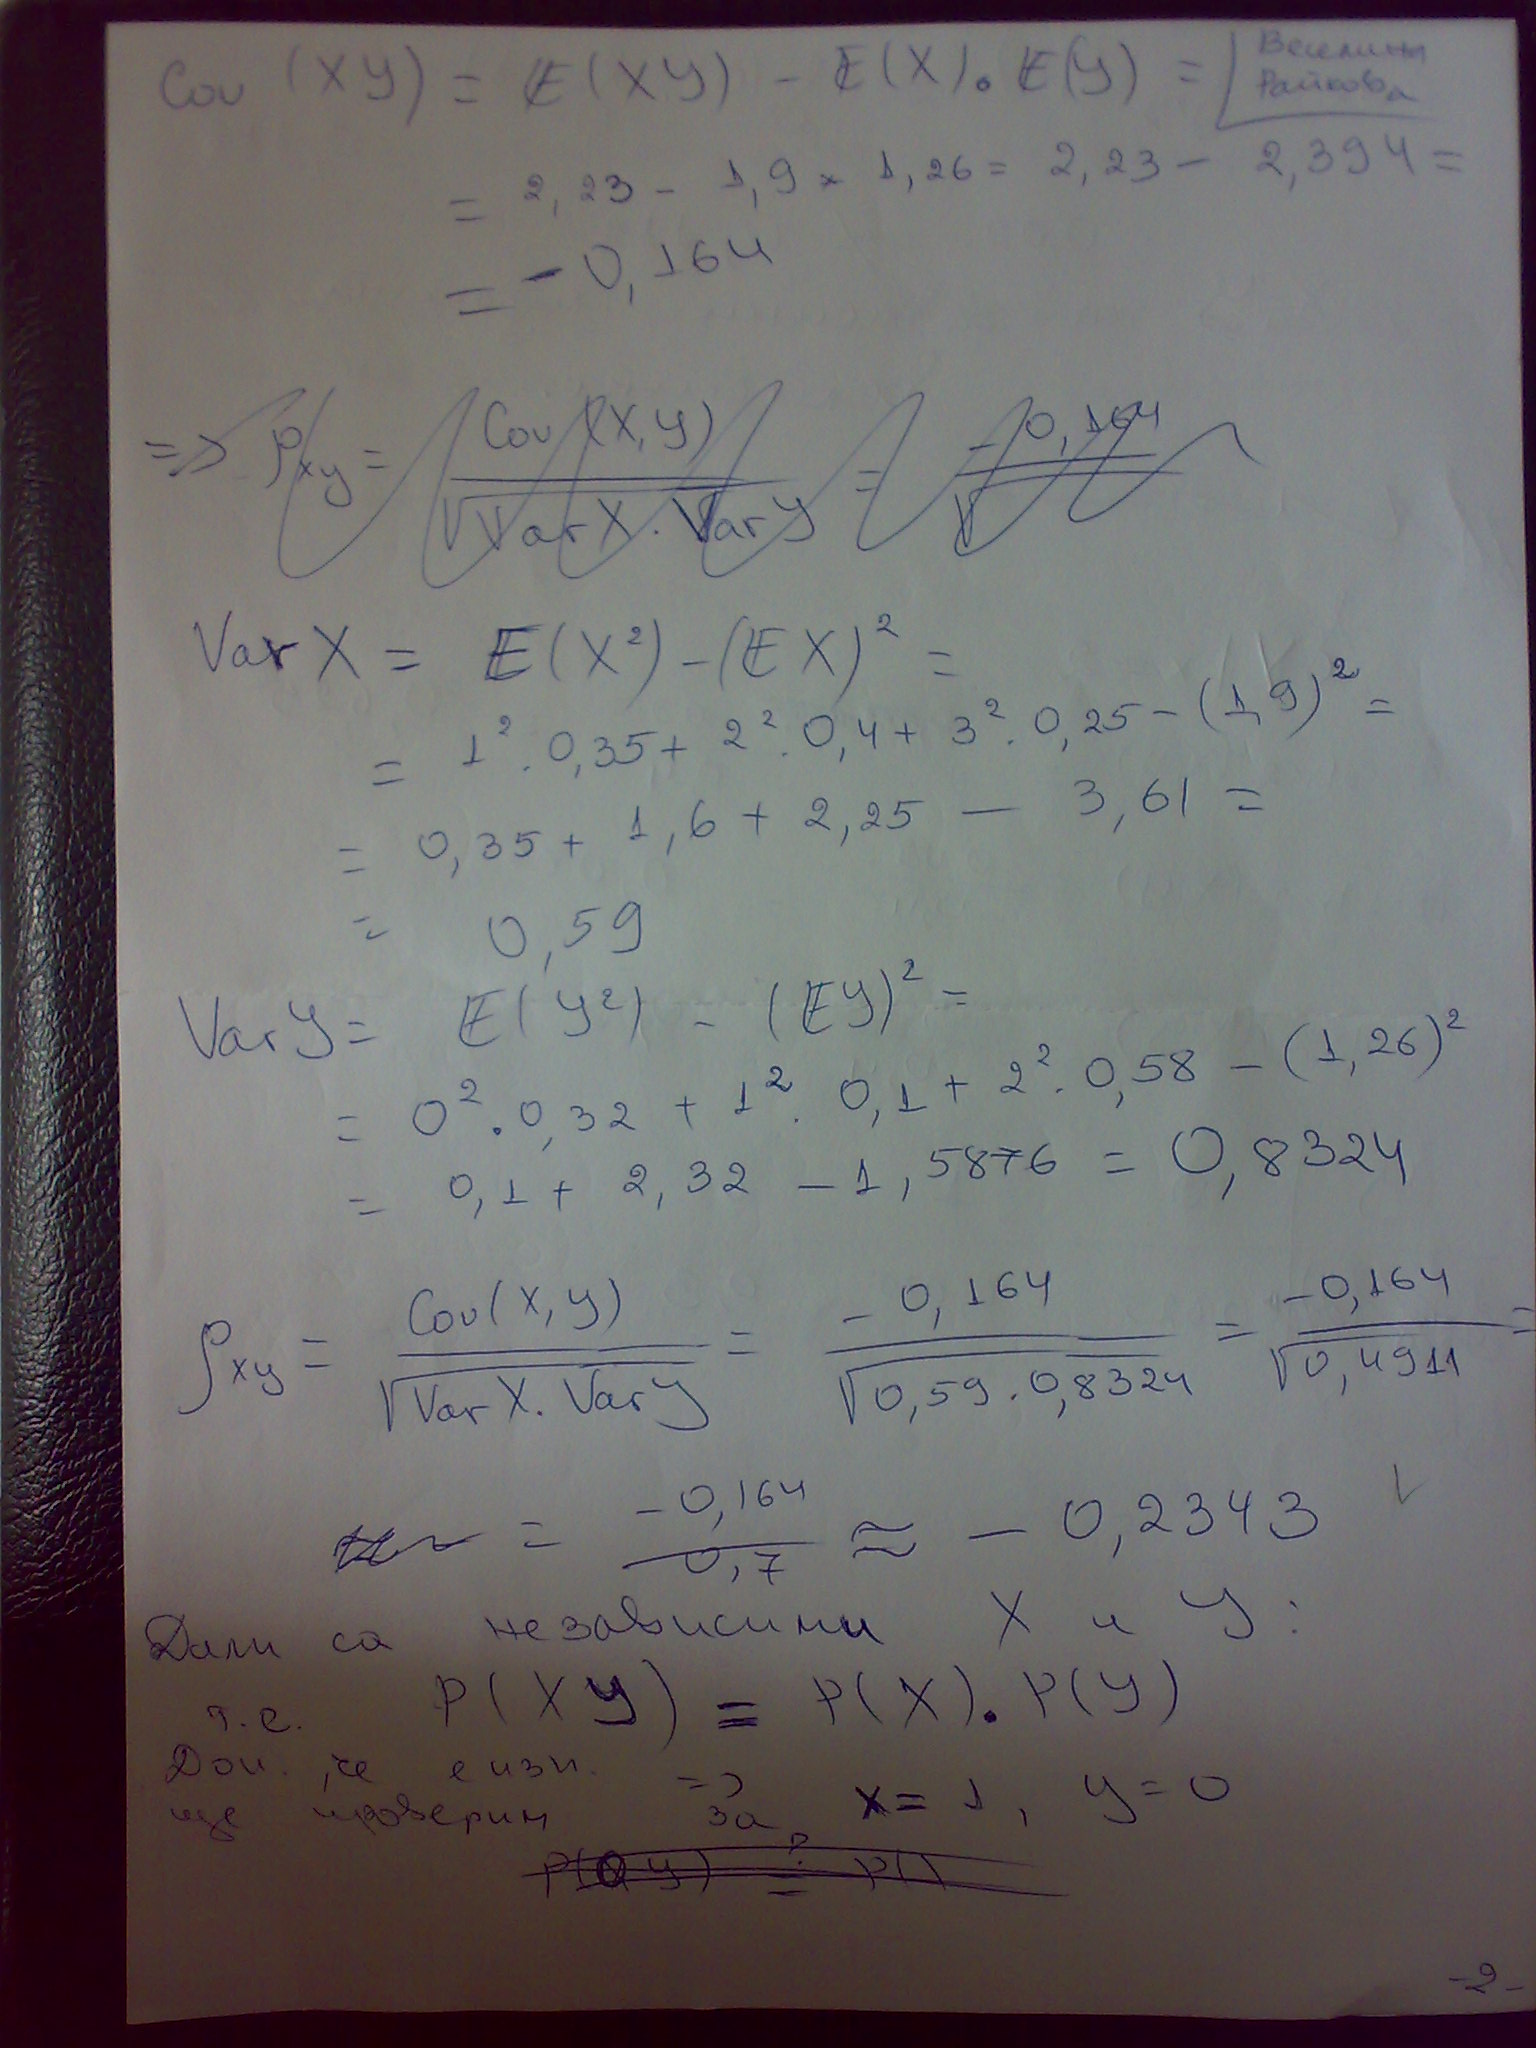 Cov (XY) = E(XY) - E(X).E(Y) =
Веселина
Райкова
= 2,23 - 1,9 × 1,26 = 2,23 - 2,394 =
= - 0,164
=> ρxy = Cov(X,Y) / √VarX.VarY = -0,164 / √
VarX = E(X²) - (EX)² =
= 1².0,35 + 2².0,4 + 3².0,25 - (1,9)² =
= 0,35 + 1,6 + 2,25 - 3,61 =
= 0,59
VarY = E(Y²) - (EY)² =
= 0².0,32 + 1².0,1 + 2².0,58 - (1,26)²
= 0,1 + 2,32 - 1,5876 = 0,8324
ρxy = Cov(X,Y) / √VarX.VarY = -0,164 / √0,59.0,8324 = -0,164 / √0,4911 =
= -0,164 / 0,7 ≈ - 0,2343
Дали са независими X и Y:
т.е. P(XY) = P(X).P(Y)
Доп., че е изп. =>
ще проверим за x = 1, y = 0
P(XY) ?= P()
-2-